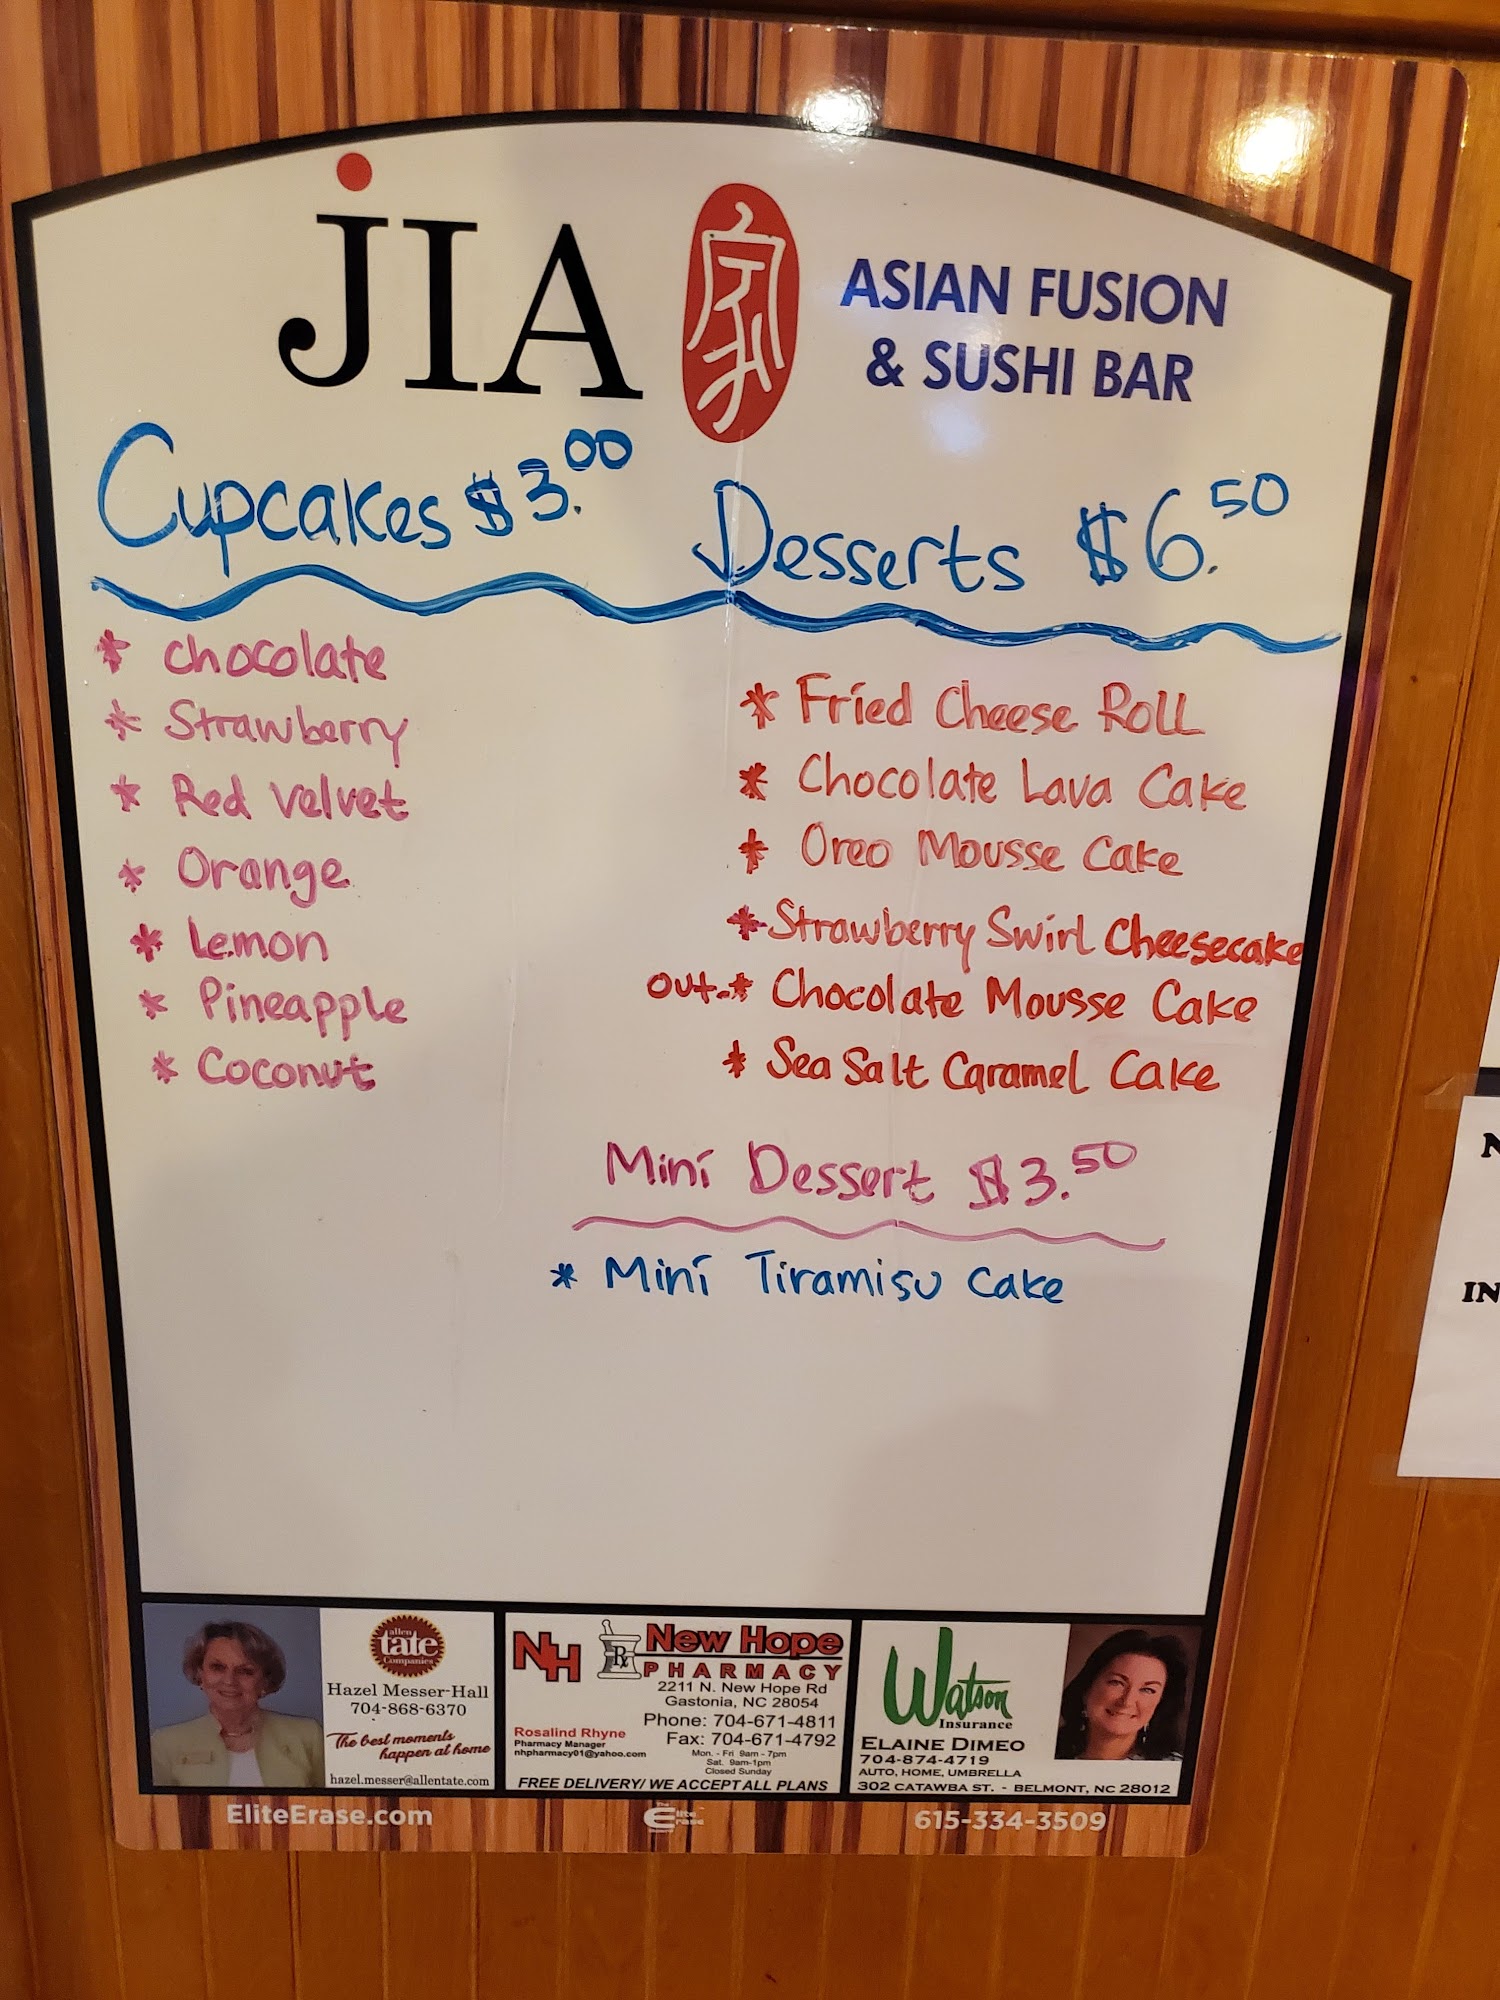 JIA
家
ASIAN FUSION
& SUSHI BAR
Cupcakes $3.00
Desserts $6.50
* chocolate
* Strawberry
* Red velvet
* Orange
* Lemon
* Pineapple
* Coconut
* Fried Cheese Roll
* Chocolate Lava Cake
* Oreo Mousse Cake
* Strawberry Swirl Cheesecake
out-* Chocolate Mousse Cake
* Sea Salt Caramel Cake
Mini Dessert $3.50
* Mini Tiramisu Cake
allen
tate
Companies
Hazel Messer-Hall
704-868-6370
The best moments
happen at home
hazel.messer@allentate.com
NH
Rx
New Hope
PHARMACY
2211 N. New Hope Rd
Gastonia, NC 28054
Phone: 704-671-4811
Fax: 704-671-4792
Rosalind Rhyne
Pharmacy Manager
nhpharmacy01@yahoo.com
Mon. - Fri 9am - 7pm
Sat. 9am-1pm
Closed Sunday
FREE DELIVERY/ WE ACCEPT ALL PLANS
Watson
Insurance
ELAINE DIMEO
704-874-4719
AUTO, HOME, UMBRELLA
302 CATAWBA ST. - BELMONT, NC 28012
EliteErase.com
The
Elite
Erase
615-334-3509
N
IN